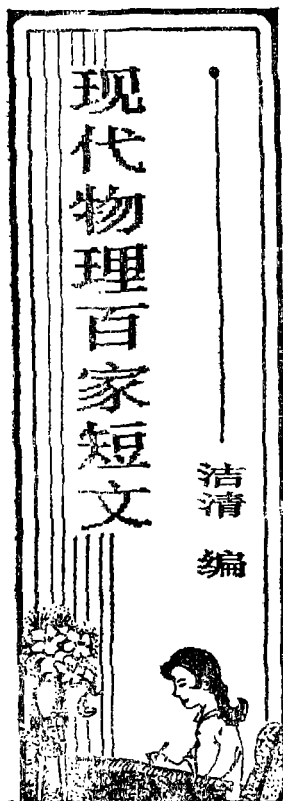 现代物理百家短文
洁清 编